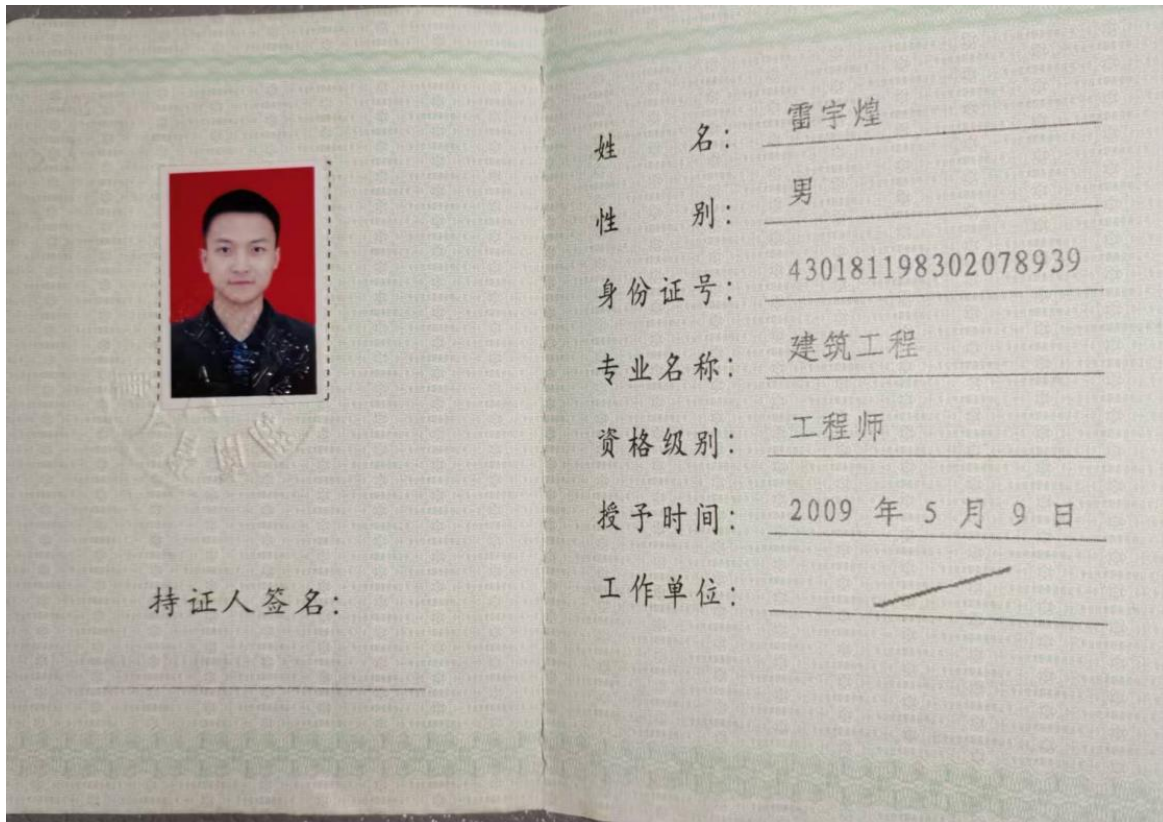 持证人签名：
姓名：雷宇煌
性别：男
身份证号：430181198302078939
专业名称：建筑工程
资格级别：工程师
授予时间：2009 年 5 月 9 日
工作单位：